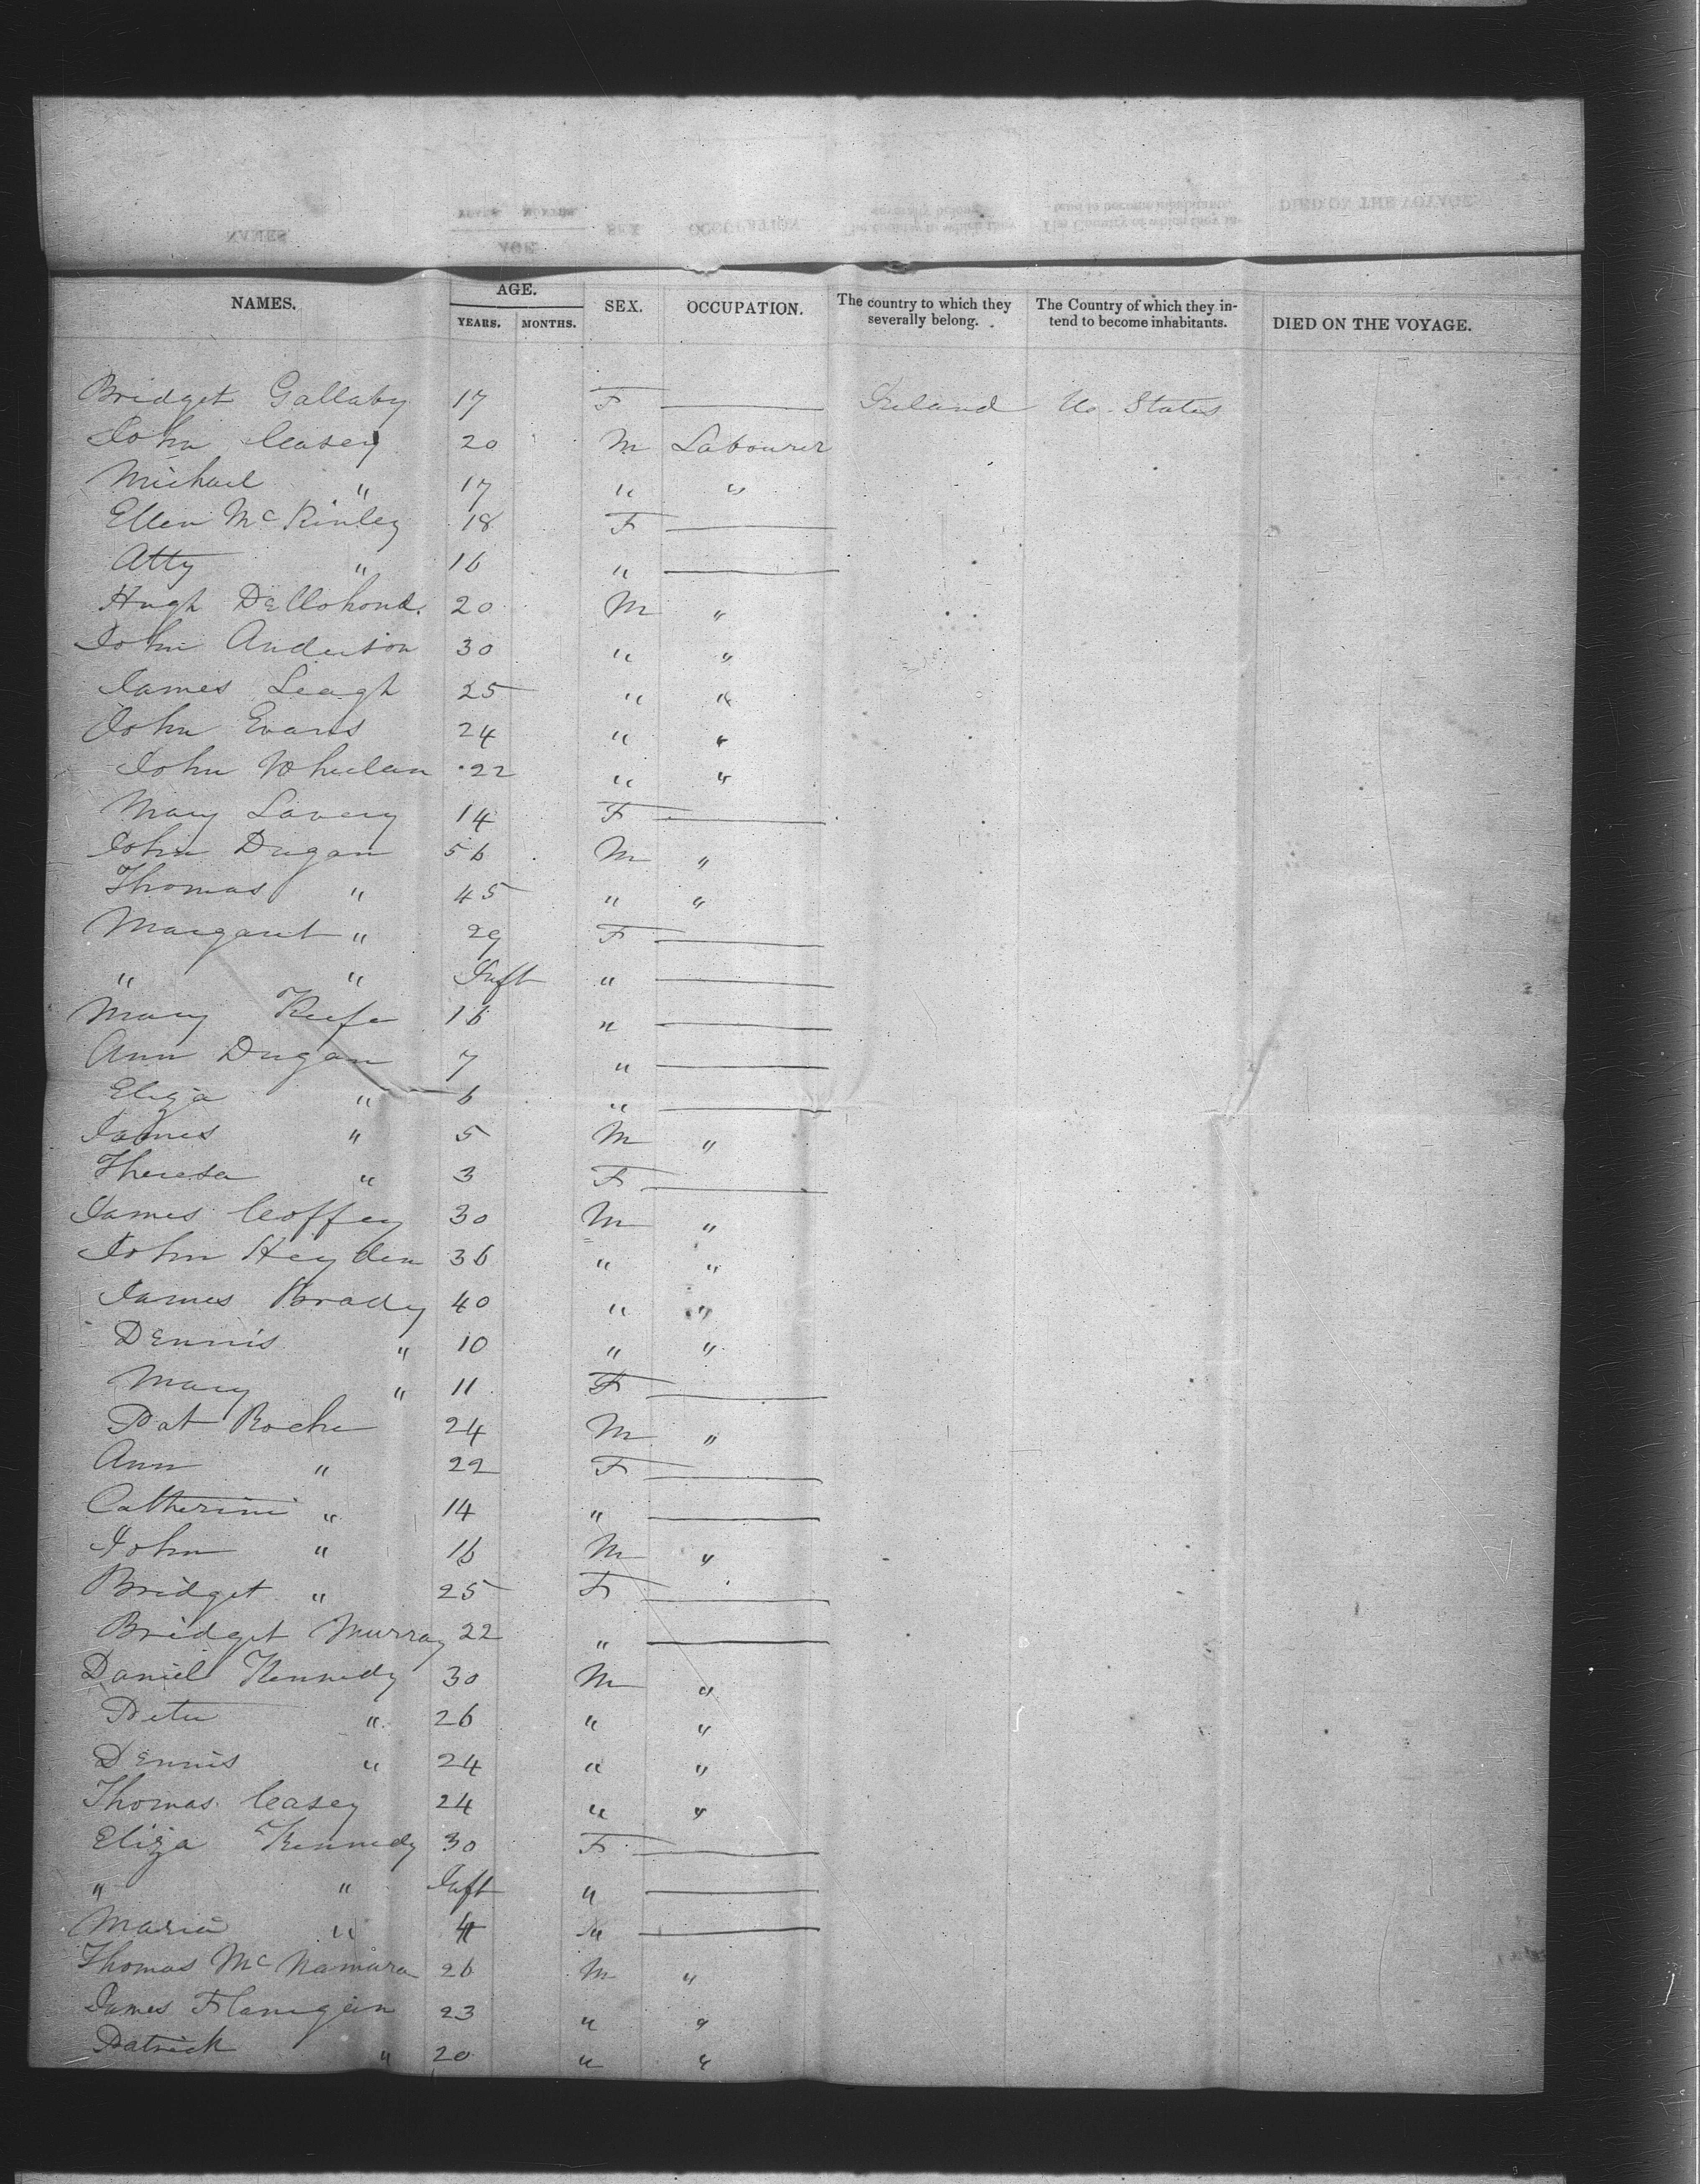 NAMES. AGE. SEX. OCCUPATION. The country to which they severally belong. The Country of which they intend to become inhabitants. DIED ON THE VOYAGE.
YEARS. MONTHS.
Bridget Gallaby 17 F —— Ireland U. States
John Casey 20 M Labourer
Michael " 17 " "
Ellen McKinley 18 F ——
Atty " 16 " ——
Hugh 20 M "
John Anderson 30 " "
James Leagh 25 " "
John Evans 24 " "
John Wheelan 22 " "
Mary Lavery 14 F ——
John Dugan 56 M "
Thomas " 45 " "
Margaret " 29 F ——
" " Inft " ——
Mary Keefe 16 " ——
Ann Dugan 7 " ——
Eliza " 6 " ——
James " 5 M "
Theresa " 3 F ——
James Coffey 30 M "
John Heyden 36 " "
James Brady 40 " "
Dennis " 10 " "
Mary " 11 F ——
Pat Roche 24 M "
Ann " 22 F ——
Catherine " 14 " ——
John " 16 M "
Bridget " 25 F ——
Bridget Murray 22 " ——
Daniel Kennedy 30 M "
Peter " 26 " "
Dennis " 24 " "
Thomas Casey 24 " "
Eliza Kennedy 30 F ——
" " Inft " ——
Maria " 4 " ——
Thomas McNamara 26 M "
James Flanigan 23 " "
Patrick " 20 " "